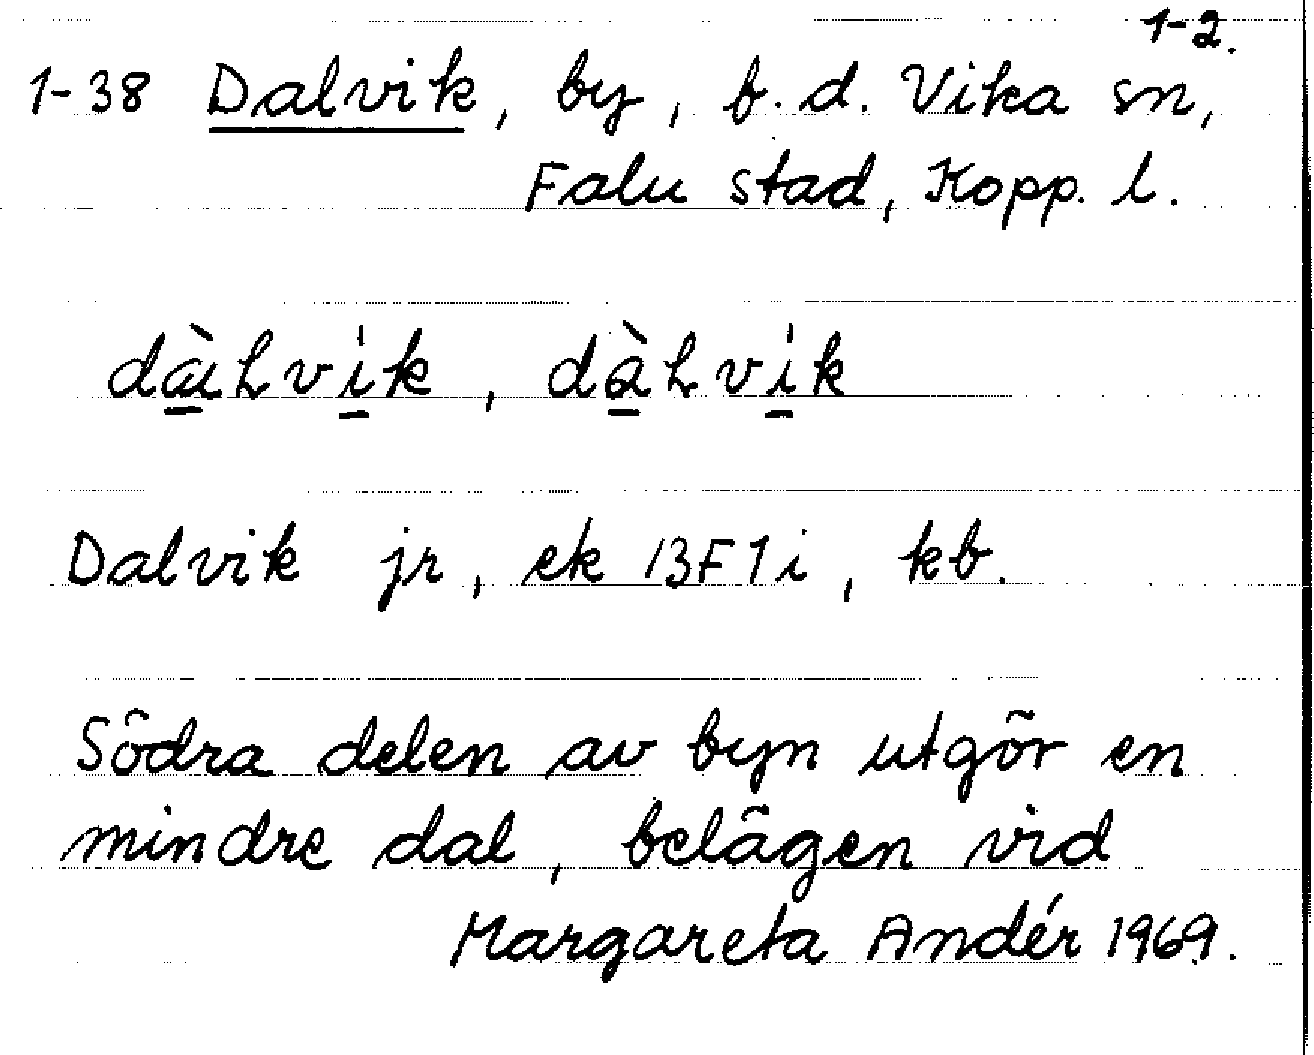 1-2.
1-38 Dalvik, by, f.d. Vika sn,
Falu stad, Kopp. l.
Dalvik jr, ek 13F1i, kb.
Södra delen av byn utgör en
mindre dal, belägen vid
Margareta Andér 1969.